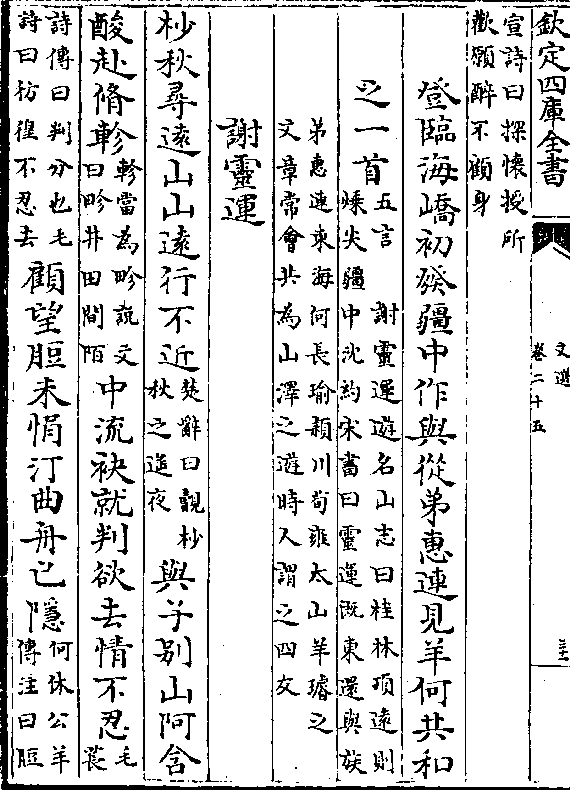 欽定四庫全書
文選
卷二十五
宣詩曰探懷授所
歡願醉不顧身
登臨海嶠初發疆中作與從弟惠連見羊何共和
之一首
五言謝靈運遊名山志曰桂林項遠則
嵊尖疆中沈約宋書曰靈運既東還與族
弟惠連東海何長瑜潁川荀雍太山羊璿之
文章常會共為山澤之遊時人謂之四友
謝靈運
杪秋尋遠山山遠行不近
楚辭曰覩杪
秋之遥夜
與子別山阿含
酸赴脩軫
軫當為畛說文
曰畛井田間陌
中流袂就判欲去情不忍
毛
萇
詩傳曰判分也毛
詩曰彷徨不忍去
顧望脰未悁汀曲舟已隱
何休公羊
傳注曰脰